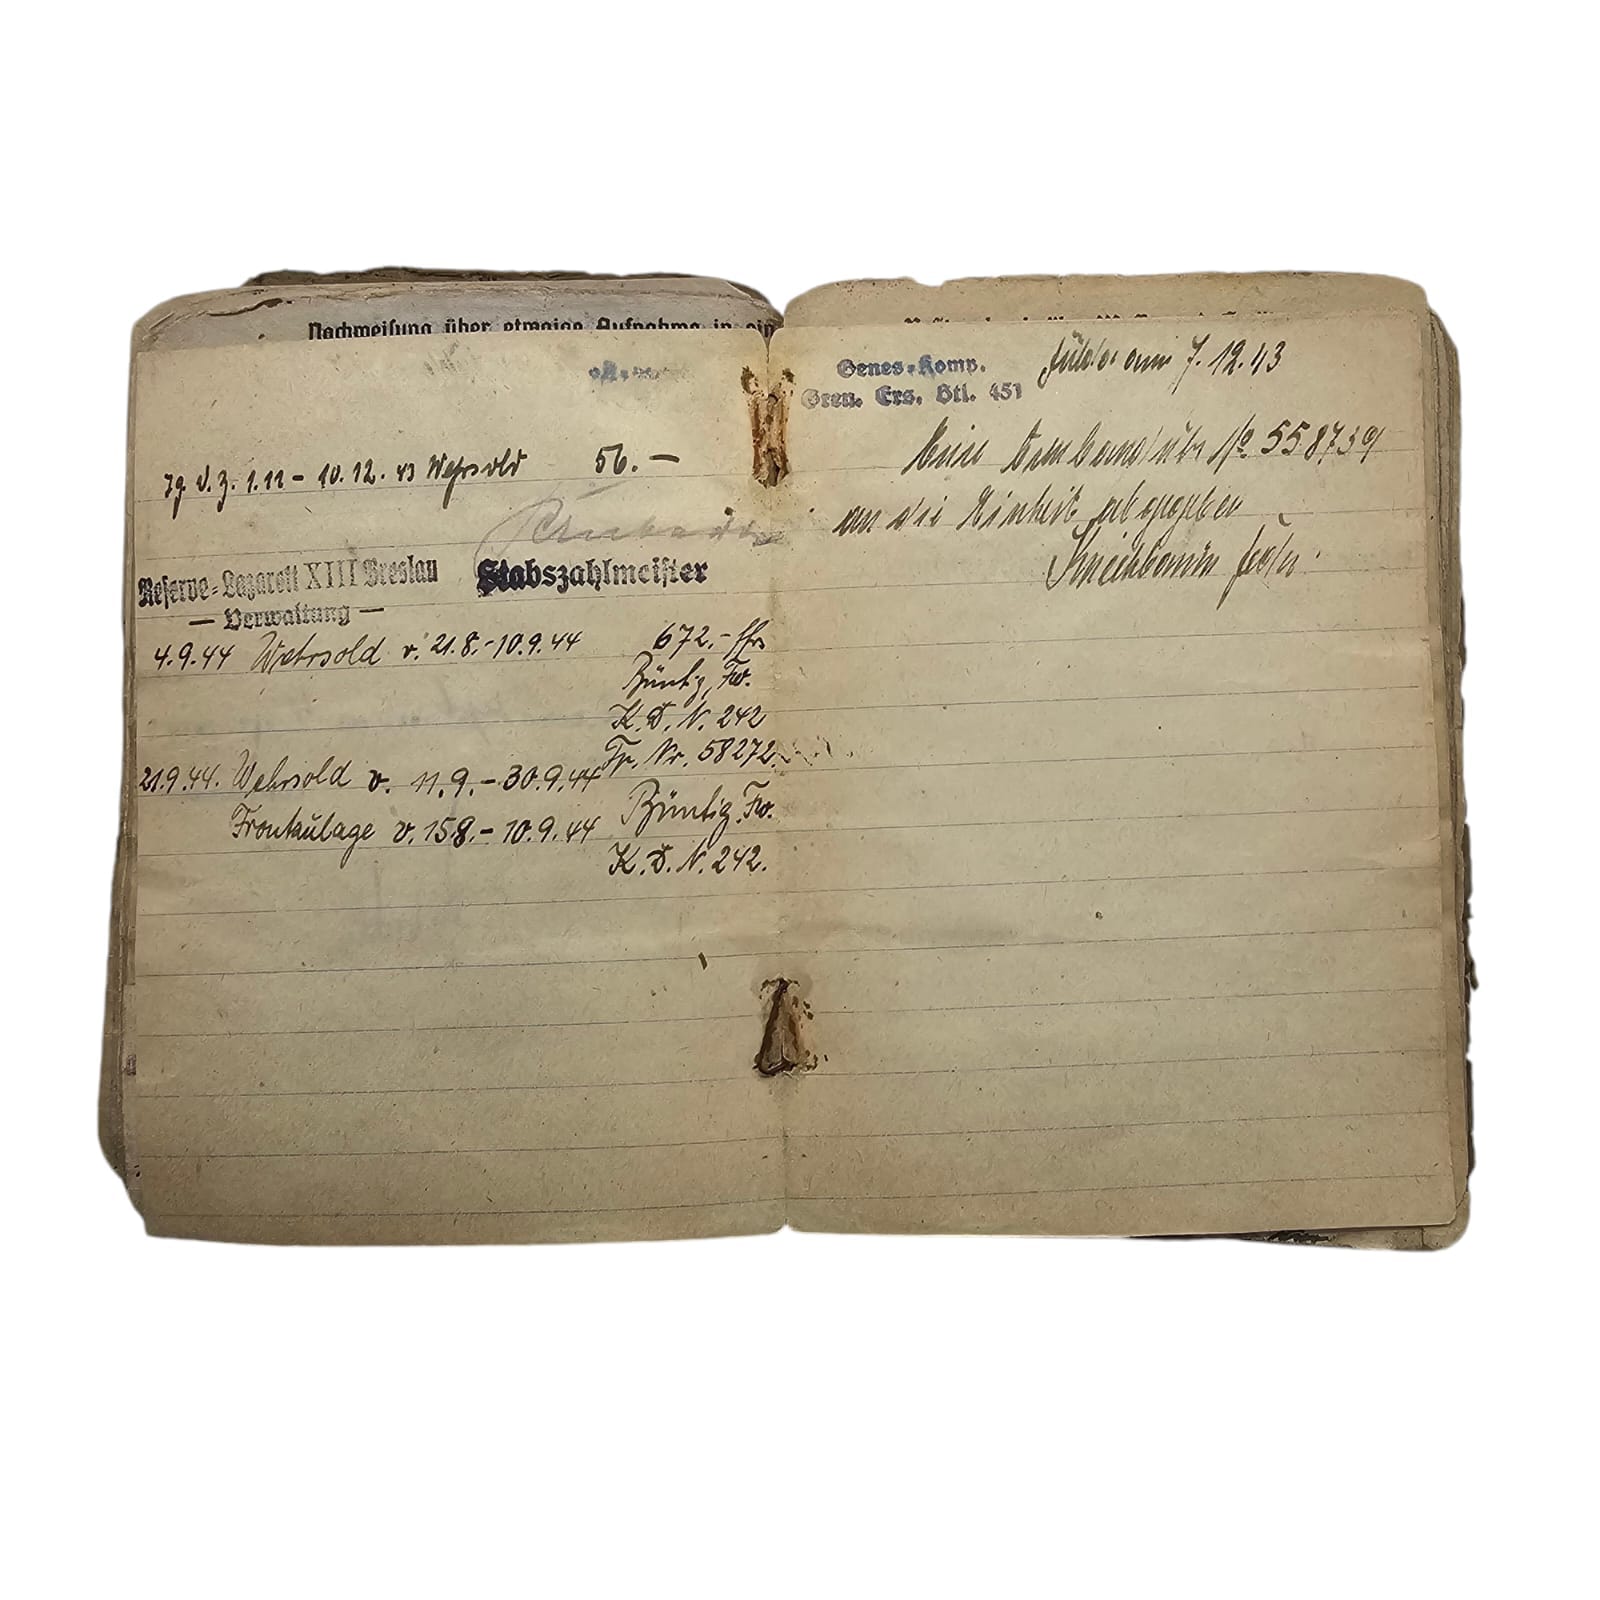 Nachweisung über etwaige Aufnahme in ein
79 d. Z. 1.11 – 10.12.43 Wehrsold 56.–
Reserve-Lazarett XIII Breslau
Stabszahlmeister
— Verwaltung —
4.9.44 Wehrsold v. 21.8.-10.9.44 672.- ffrs
Büntig, Fw.
K.D.N. 242
Fp. Nr. 58272
21.9.44. Wehrsold v. 11.9.-30.9.44
Frontzulage v. 15.8.-10.9.44 Büntig, Fw.
K.D.N. 242.
Genes.-Komp.
Gren. Ers. Btl. 451
am 7.12.43
Eine Armbanduhr No 558739
an die Einheit abgegeben